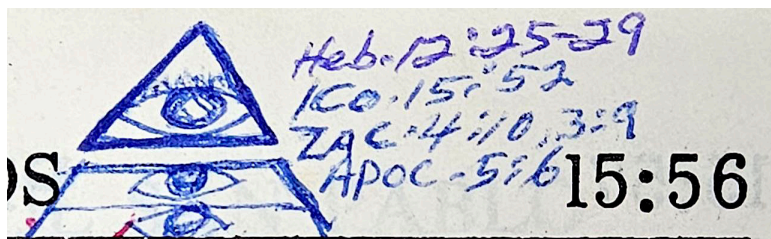 Heb. 12:25-29
1CO. 15:52
ZAC. 4:10, 3:9
APOC. 5:6
OS 15:56